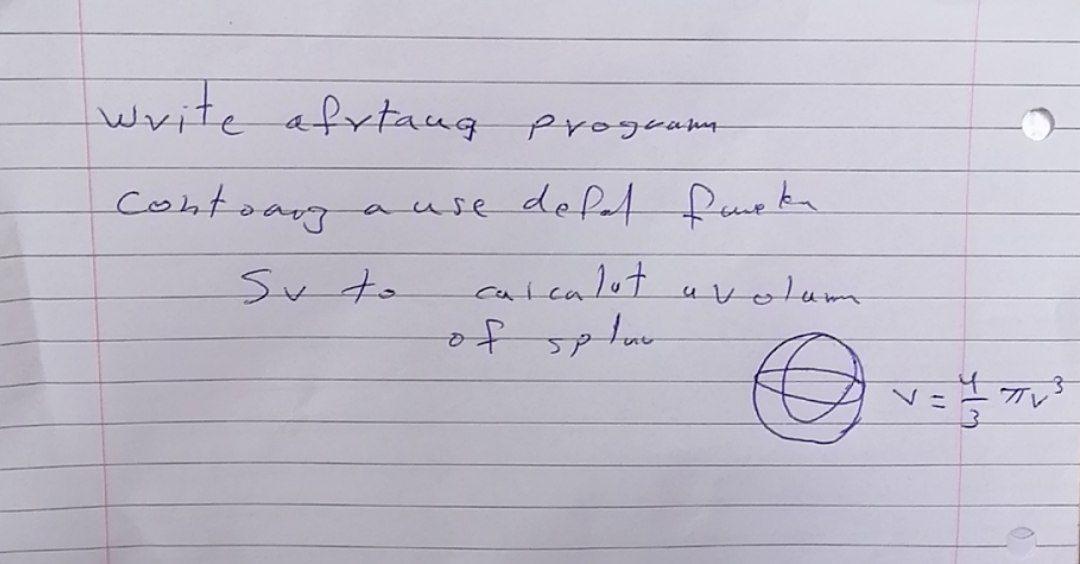 Write afrtang program
Contoang a use defd funktn
Sv to calcalut a volum
of sphr
V = 4/3 πr³